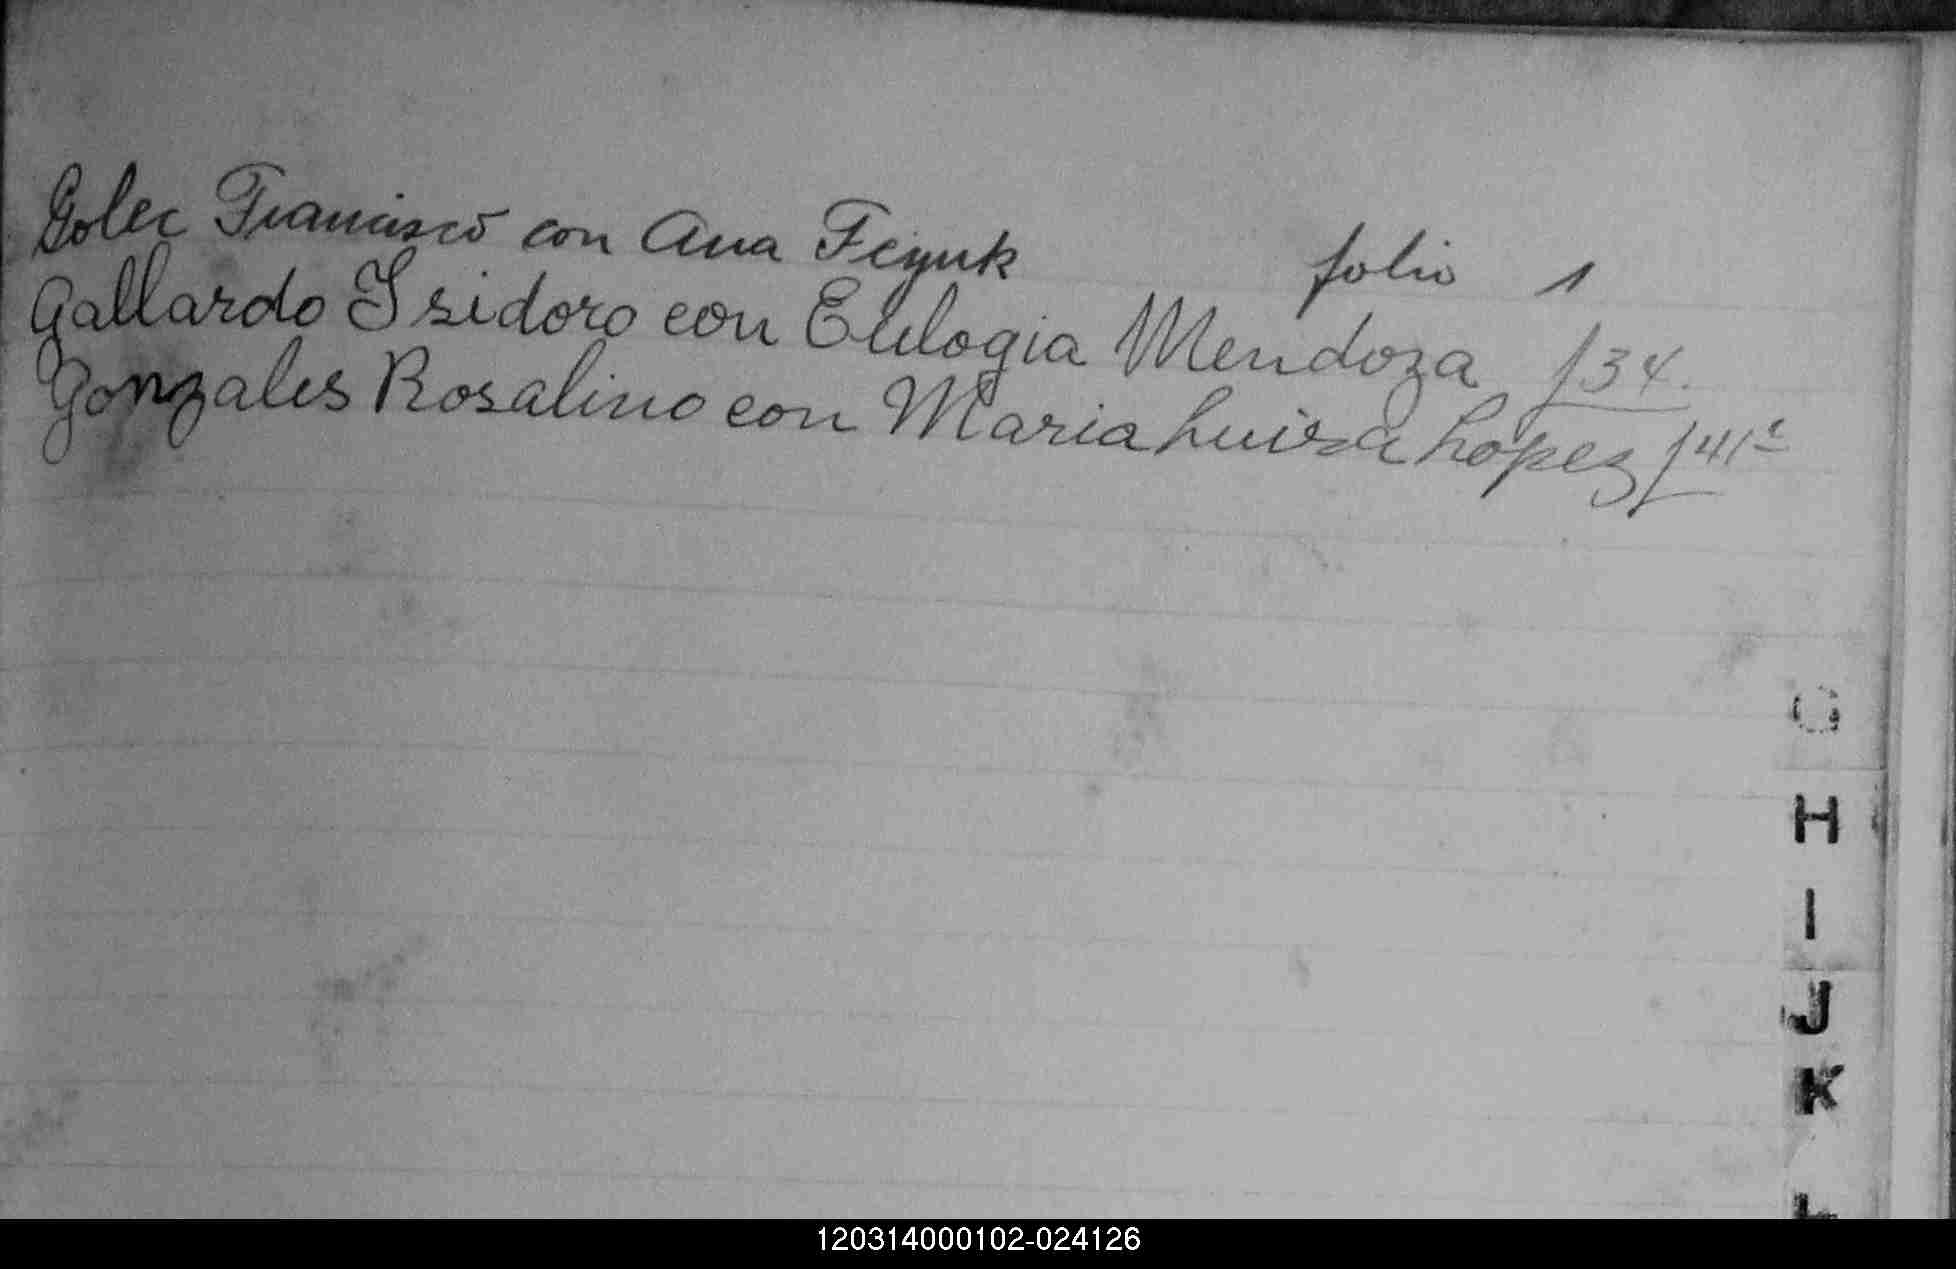 Golec Francisco con Ana Fejuk folio 1
Gallardo Isidoro con Eulogia Mendoza f 34.
Gonzales Rosalino con Maria Luiza Lopez f 41
G
H
I
J
K
L
120314000102-024126